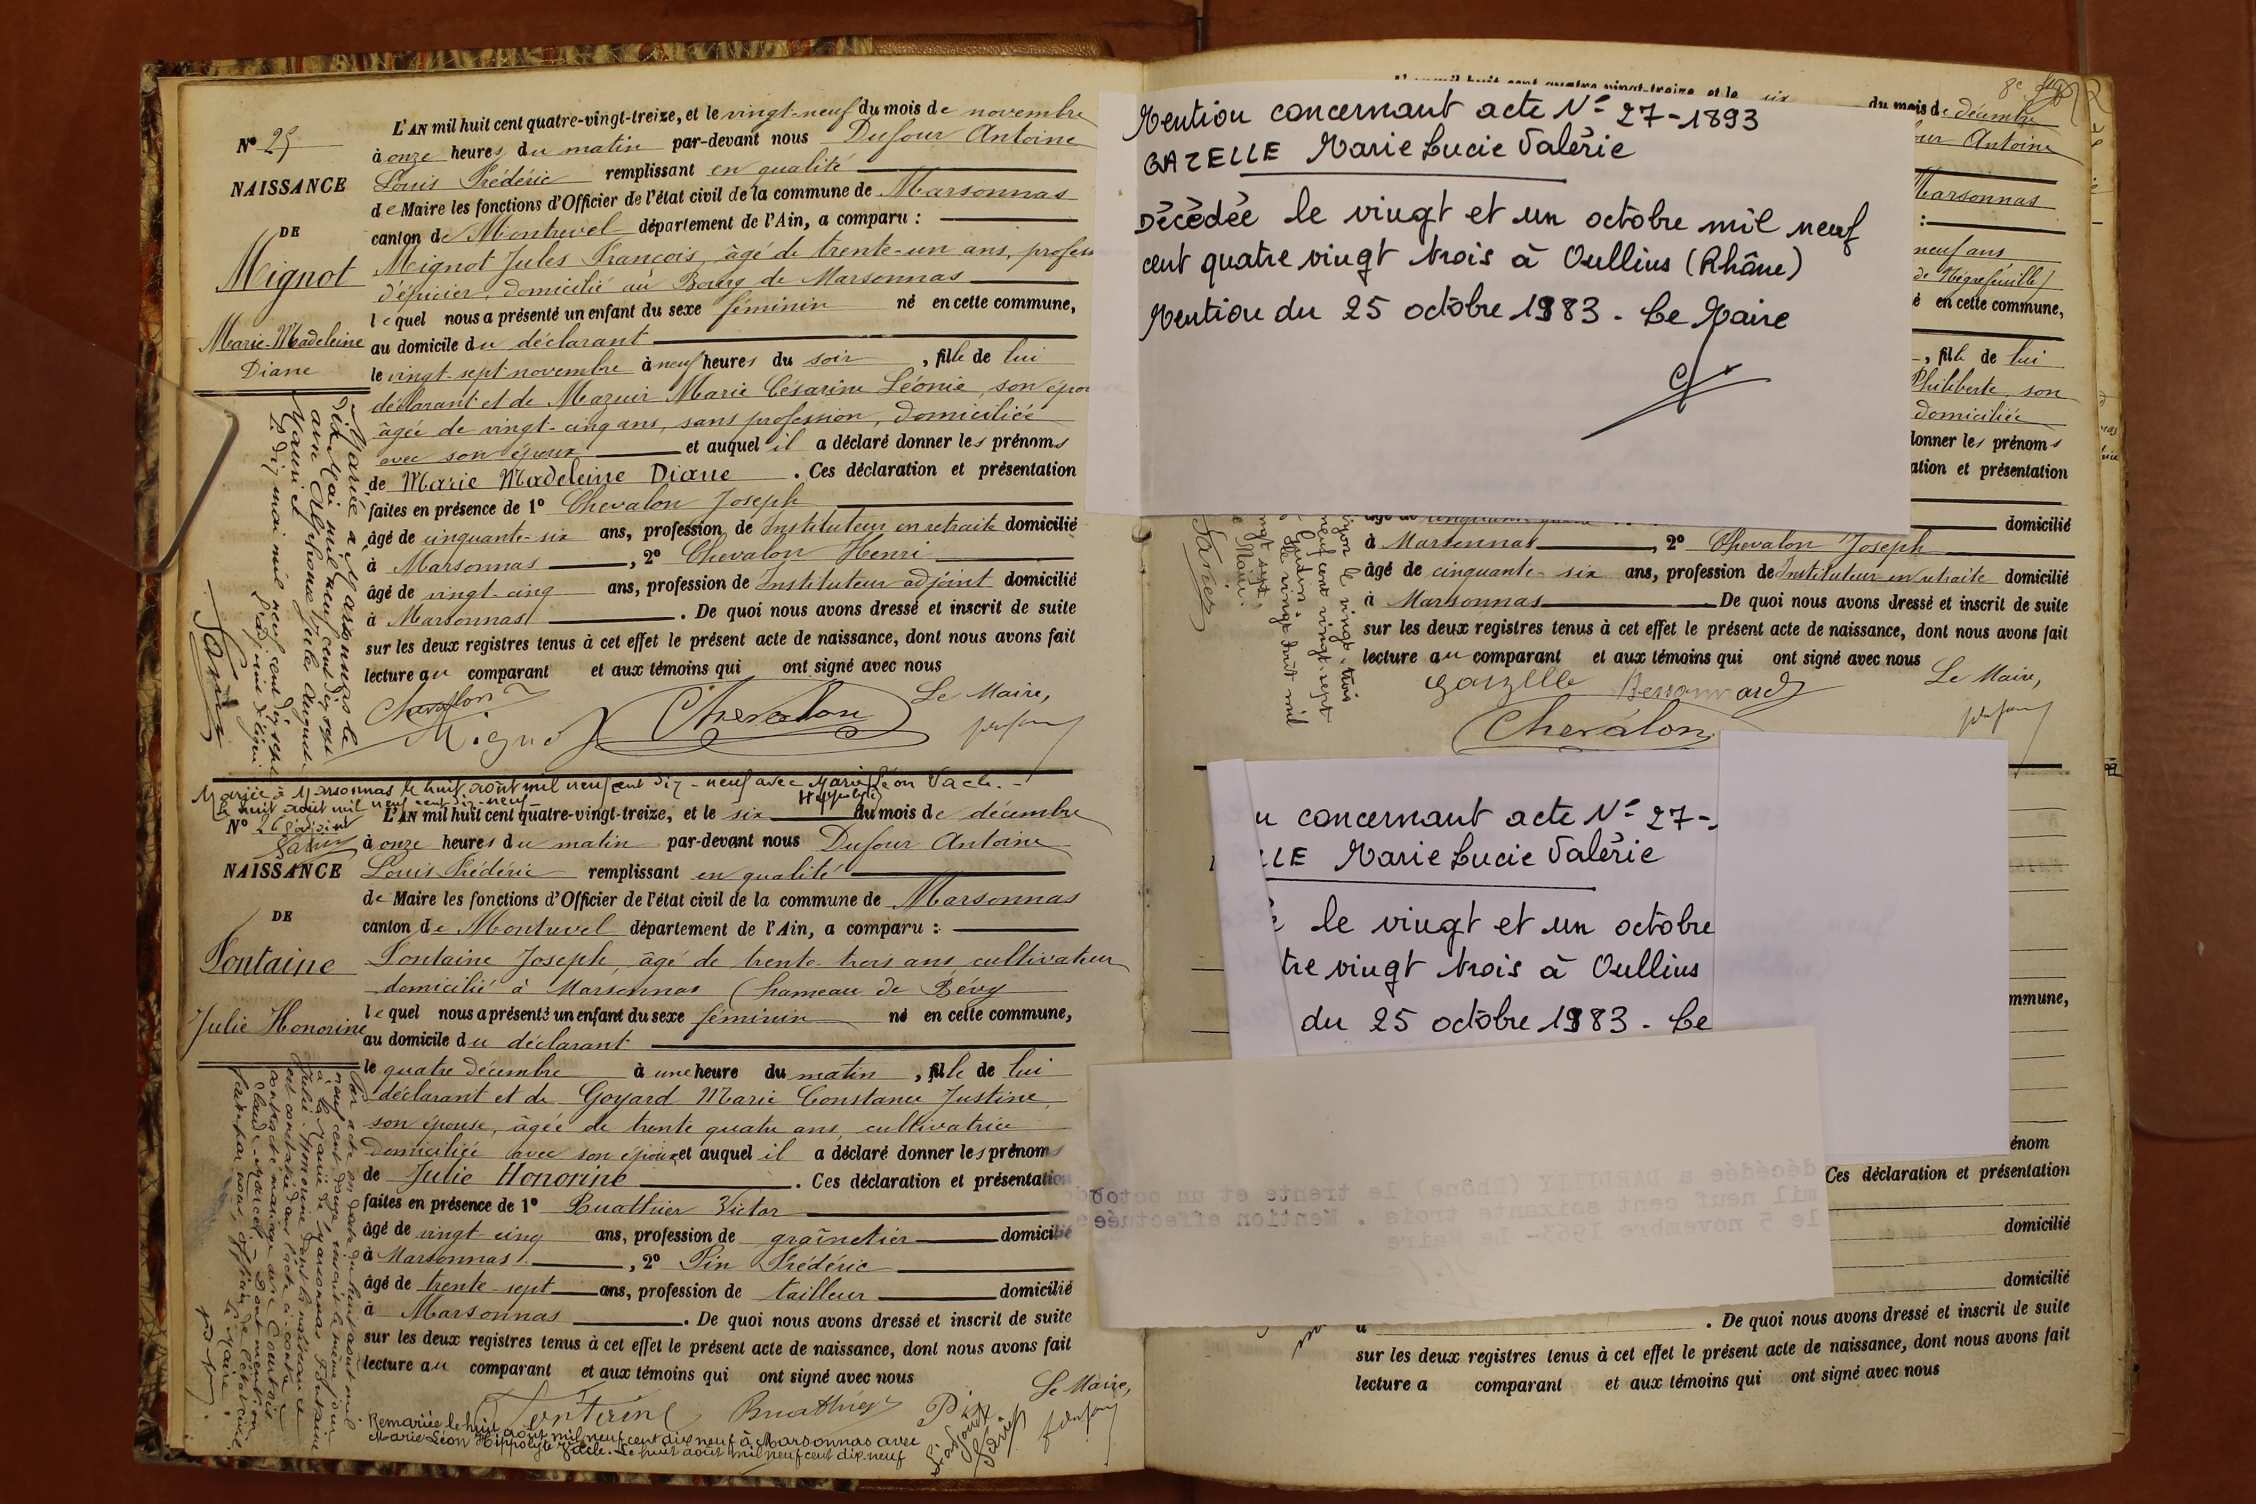 L'AN mil huit cent quatre-vingt-treize, et le vingt-neuf du mois de novembre
N° 25
à onze heures du matin par-devant nous Dufour Antoine
NAISSANCE
Louis Frédéric remplissant en qualité
de Maire les fonctions d'Officier de l'état civil de la commune de Marsonnas
DE
canton de Montrevel département de l'Ain, a comparu :
Mignot
Mignot Jules François, âgé de trente-un ans, profess
d'épicier, domicilié au Bourg de Marsonnas
lequel nous a présenté un enfant du sexe féminin né en cette commune,
Marie-Madeleine
Diane
au domicile du déclarant
le vingt-sept novembre à neuf heures du soir , fille de lui
déclarant et de Mazuir Marie Césarine Léonie, son épou
âgée de vingt-cinq ans, sans profession, domiciliée
avec son époux et auquel il a déclaré donner les prénoms
de Marie Madeleine Diane . Ces déclaration et présentation
faites en présence de 1° Chevalon Joseph
âgé de cinquante-six ans, profession de Instituteur en retraite domicilié
à Marsonnas , 2° Chevalon Henri
âgé de vingt-cinq ans, profession de Instituteur adjoint domicilié
à Marsonnas . De quoi nous avons dressé et inscrit de suite
sur les deux registres tenus à cet effet le présent acte de naissance, dont nous avons fait
lecture au comparant et aux témoins qui ont signé avec nous
Le Maire,
Chevalon
Mignot
Chevalon
Dufour
Mariée à Marsonnas le
dix Mai mil neuf cent dix sept
avec Alphonse
Le dix mai mil neuf cent dix sept
Mariée à Marsonnas le huit août mil neuf cent dix-neuf avec Marie Léon Vacle.
Hippolyte
Le huit août mil neuf cent dix-neuf
L'AN mil huit cent quatre-vingt-treize, et le six du mois de décembre
N° 26
à onze heures du matin par-devant nous Dufour Antoine
NAISSANCE
Louis Frédéric remplissant en qualité
de Maire les fonctions d'Officier de l'état civil de la commune de Marsonnas
DE
canton de Montrevel département de l'Ain, a comparu :
Fontaine
Fontaine Joseph, âgé de trente-trois ans, cultivateur
domicilié à Marsonnas (hameau de Bévy
Julie Honorine
lequel nous a présenté un enfant du sexe féminin né en cette commune,
au domicile du déclarant
le quatre décembre à une heure du matin , fille de lui
déclarant et de Goyard Marie Constance Justine,
son épouse, âgée de trente quatre ans, cultivatrice
domiciliée avec son époux et auquel il a déclaré donner les prénoms
de Julie Honorine . Ces déclaration et présentation
faites en présence de 1° Buathier Victor
âgé de vingt cinq ans, profession de grainetier domicilié
à Marsonnas , 2° Pin Frédéric
âgé de trente-sept ans, profession de tailleur domicilié
à Marsonnas . De quoi nous avons dressé et inscrit de suite
sur les deux registres tenus à cet effet le présent acte de naissance, dont nous avons fait
lecture au comparant et aux témoins qui ont signé avec nous
Le Maire,
Fontaine Buathier Pin
Dufour
Remariée le huit août mil neuf cent dix neuf à Marsonnas avec
Marie Léon Hippolyte Vacle. Le huit août mil neuf cent dix-neuf
du mois de décembre
Antoine
Mention concernant acte N° 27-1893
GAZELLE Marie Lucie Valérie
Décédée le vingt et un octobre mil neuf
cent quatre vingt trois à Oullins (Rhône)
Mention du 25 octobre 1983 - Le Maire
Marsonnas
neuf ans,
de Négrefeuille)
en cette commune,
, fille de lui
Philiberte, son
domiciliée
donner les prénoms
ation et présentation
domicilié
à Marsonnas , 2° Chevalon Joseph
âgé de cinquante-six ans, profession de Instituteur en retraite domicilié
à Marsonnas De quoi nous avons dressé et inscrit de suite
sur les deux registres tenus à cet effet le présent acte de naissance, dont nous avons fait
lecture au comparant et aux témoins qui ont signé avec nous
Le Maire,
Gazelle
Chevalon
Dufour
u concernant acte N° 27-
LLE Marie Lucie Valérie
le vingt et un octobre
tre vingt trois à Oullins
du 25 octobre 1983 - Le
mmune,
énom
Ces déclaration et présentation
décédée a DARDILLY (Rhône) le trente et un octob
mil neuf cent soixante trois . Mention effectuée
le 5 novembre 1963- Le Maire
domicilié
domicilié
. De quoi nous avons dressé et inscrit de suite
sur les deux registres tenus à cet effet le présent acte de naissance, dont nous avons fait
lecture a comparant et aux témoins qui ont signé avec nous